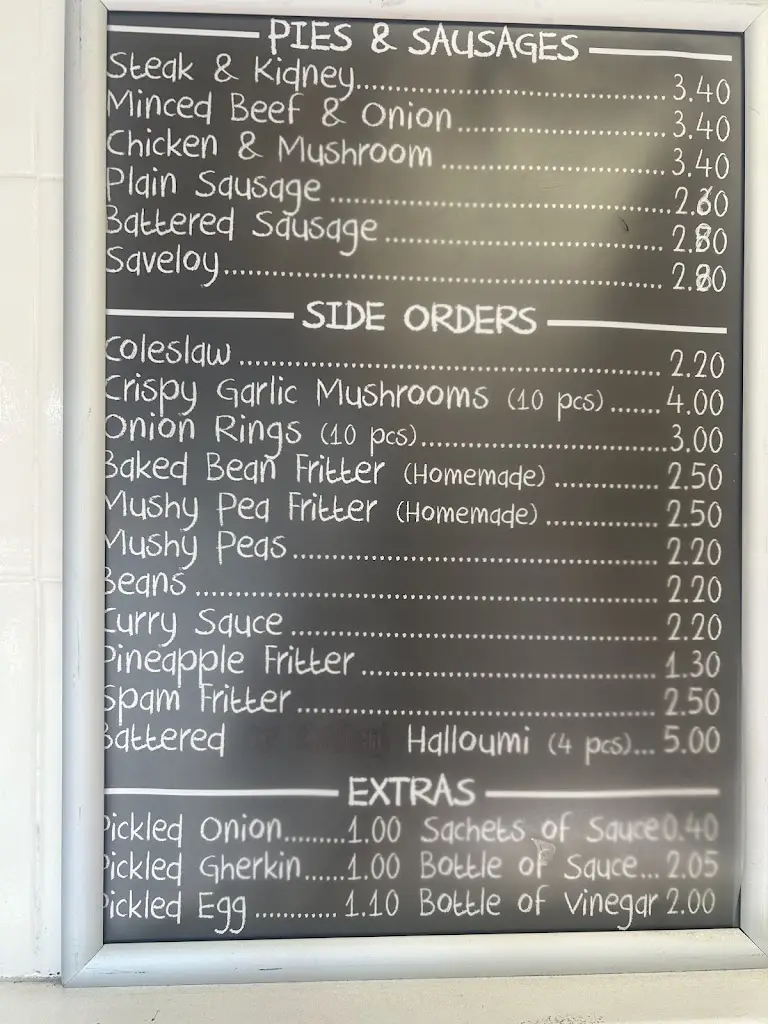 PIES & SAUSAGES
Steak & Kidney 3.40
Minced Beef & Onion 3.40
Chicken & Mushroom 3.40
Plain Sausage
Battered Sausage 2.80
Saveloy 2.80
SIDE ORDERS
Coleslaw 2.20
Crispy Garlic Mushrooms (10 pcs) 4.00
Onion Rings (10 pcs) 3.00
Baked Bean Fritter (Homemade) 2.50
Mushy Pea Fritter (Homemade) 2.50
Mushy Peas 2.20
Beans 2.20
Curry Sauce 2.20
Pineapple Fritter 1.30
Spam Fritter 2.50
Battered Halloumi (4 pcs) 5.00
EXTRAS
Pickled Onion 1.00 Sachets of Sauce 0.40
Pickled Gherkin 1.00 Bottle of Sauce 2.05
Pickled Egg 1.10 Bottle of Vinegar 2.00